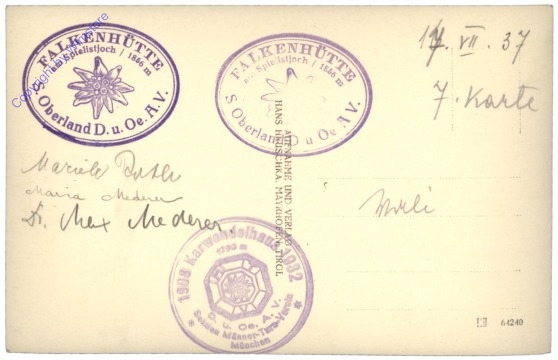 FALKENHÜTTE
am Spielistjoch / 1866 m
S. Oberland D. u. Oe. A.V.
FALKENHÜTTE
am Spielistjoch / 1866 m
S. Oberland D. u. Oe. A.V.
VII. 37
7. Karte
Maria Mederer
Dr. Max Mederer.
AUFNAHME UND VERLAG
HANS HRUSCHKA, MAYRHOFEN, TIROL
1908 Karwendelhaus 1932
D. u. Oe. A. V.
Sektion Männer-Turn-Verein
München
64240